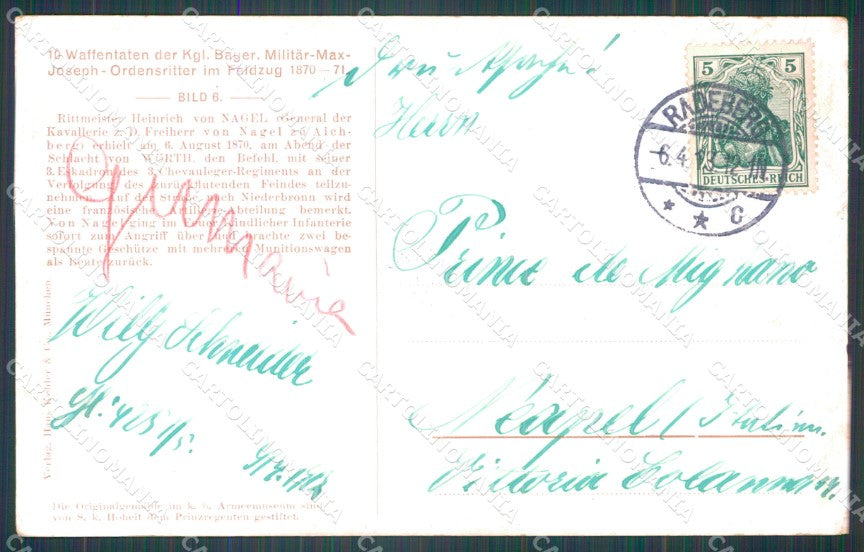 10 Waffentaten der Kgl. Bayer. Militär-Max-
Joseph-Ordensritter im Feldzug 1870-71.
BILD 6.
Rittmeister Heinrich von NAGEL (General der
Kavallerie z. D. Freiherr von Nagel zu Aich-
berg) erhielt am 6. August 1870, am Abend der
Schlacht von WÖRTH, den Befehl, mit seiner
3. Eskadron des 3. Chevauleger-Regiments an der
Verfolgung des zurückflutenden Feindes teilzu-
nehmen. Auf der Straße nach Niederbronn wird
eine französische Abteilung bemerkt.
Von Nagel ging im Feuer feindlicher Infanterie
sofort zum Angriff über und brachte zwei be-
spannte Geschütze mit mehreren Munitionswagen
als Beute zurück.
Grammaire
Willy Schneider
425/5.
Verlag, Hans Köhler & Co., München
Die Originalgemälde im k. b. Armeemuseum sind
von S. k. Hoheit dem Prinzregenten gestiftet.
Herrn
Prince de Mignano
Neapel (Italien.
Vittoria Colonna
5 5
DEUTSCHES REICH
RADEBERG
6.4.13
* * c
CARTOLINOMANIA